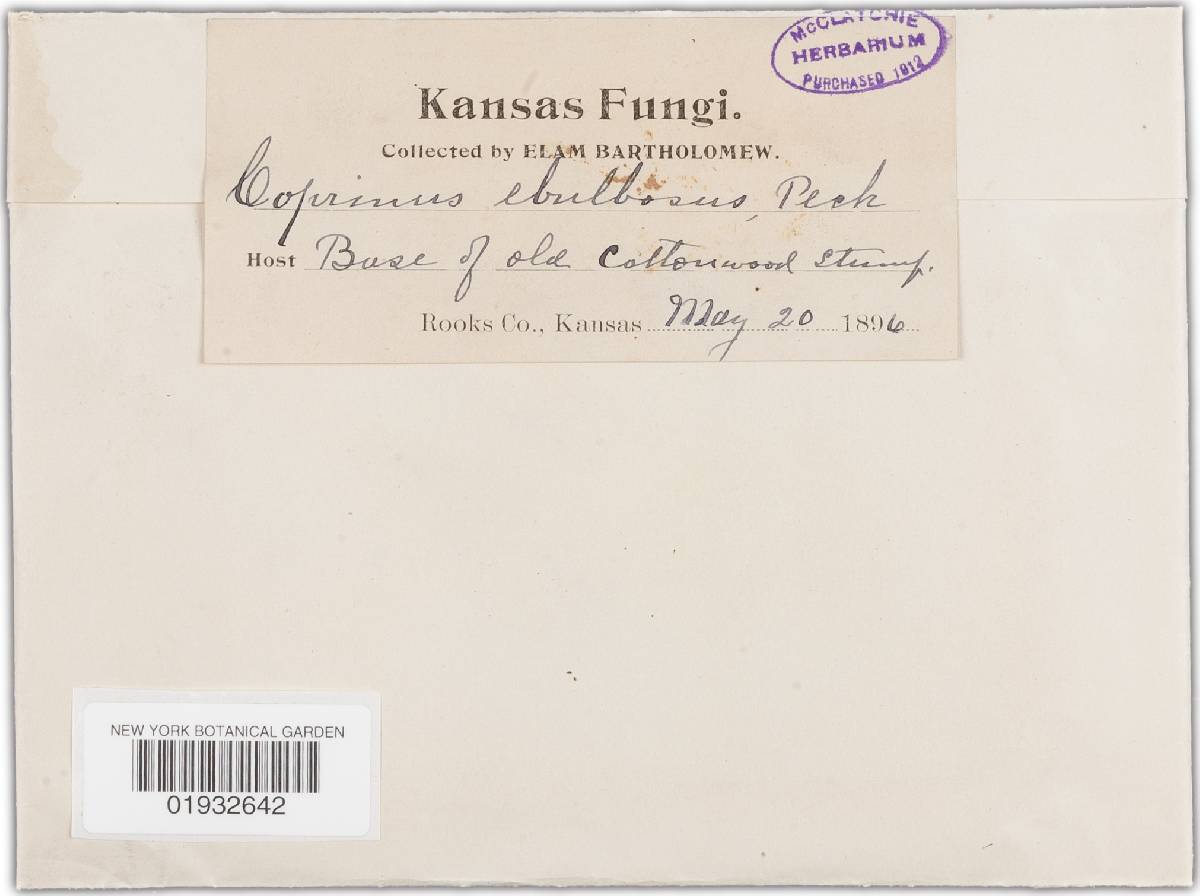 McCLATCHIE
HERBARIUM
PURCHASED 1912
Kansas Fungi.
Collected by ELAM BARTHOLOMEW.
Coprinus ebulbosus, Peck
Host Base of old Cottonwood stump.
Rooks Co., Kansas May 20 1896
NEW YORK BOTANICAL GARDEN
01932642